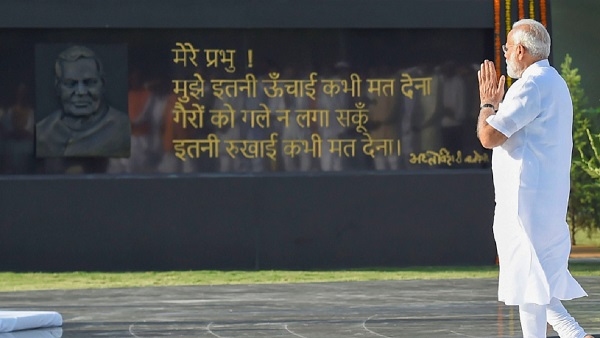 मेरे प्रभु !
मुझे इतनी ऊँचाई कभी मत देना
गैरों को गले न लगा सकूँ
इतनी रुखाई कभी मत देना।